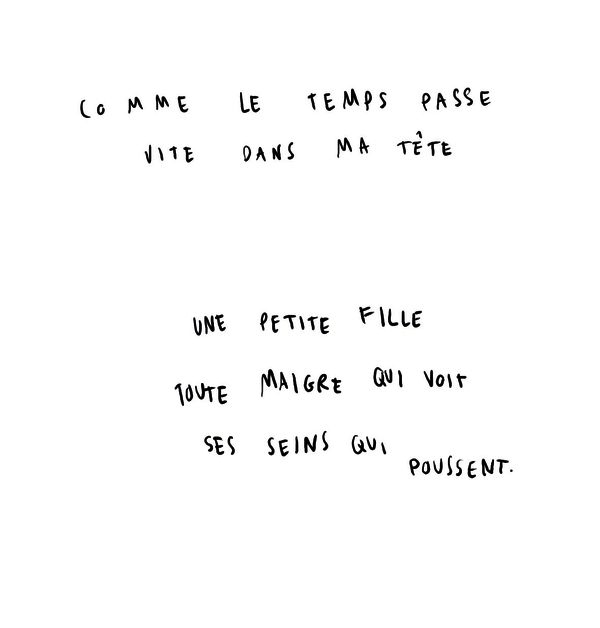 COMME LE TEMPS PASSE
VITE DANS MA TÊTE
UNE PETITE FILLE
TOUTE MAIGRE QUI VOIT
SES SEINS QUI
POUSSENT.